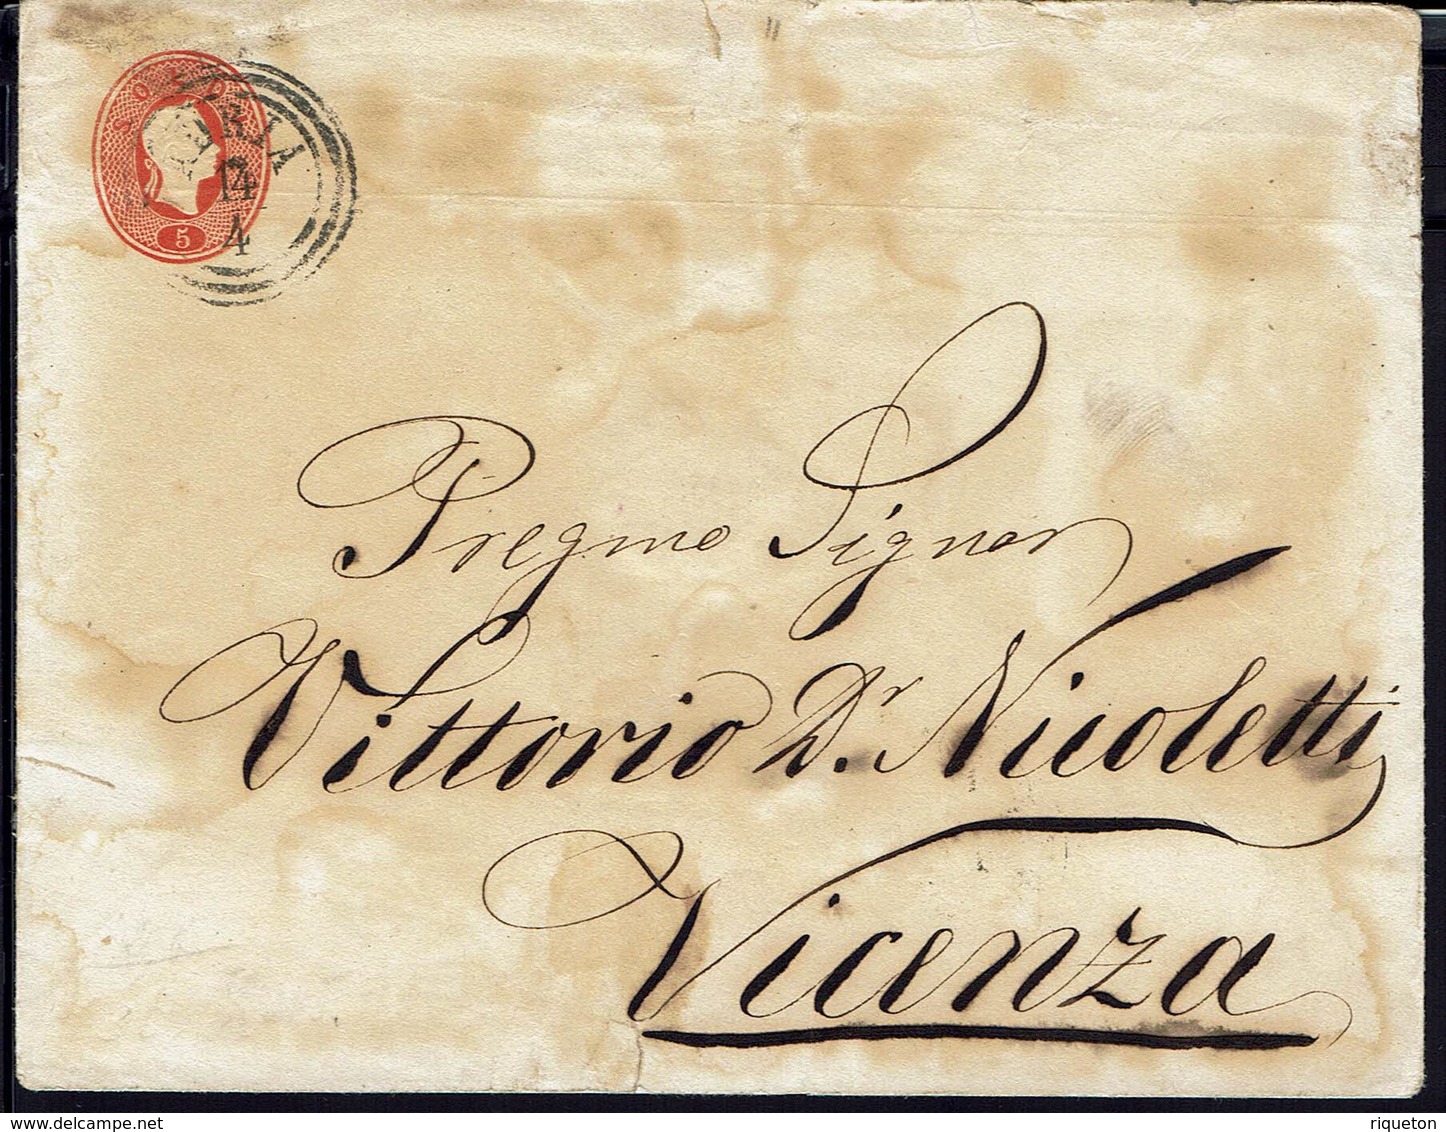 5
14
4
Pregmo Signor
Vittorio Dr. Nicoletti
Vicenza
delcampe.net
riqueton